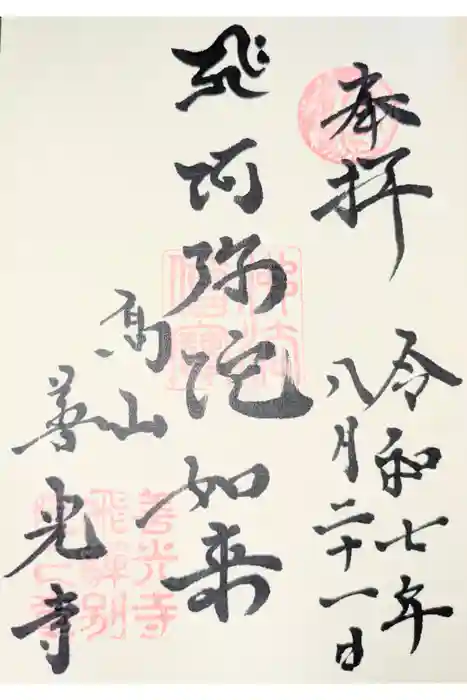 奉拝
令和七年
八月二十一日
阿弥陀如来
高山
善光寺
佛法僧寳
善光寺
飛騨別